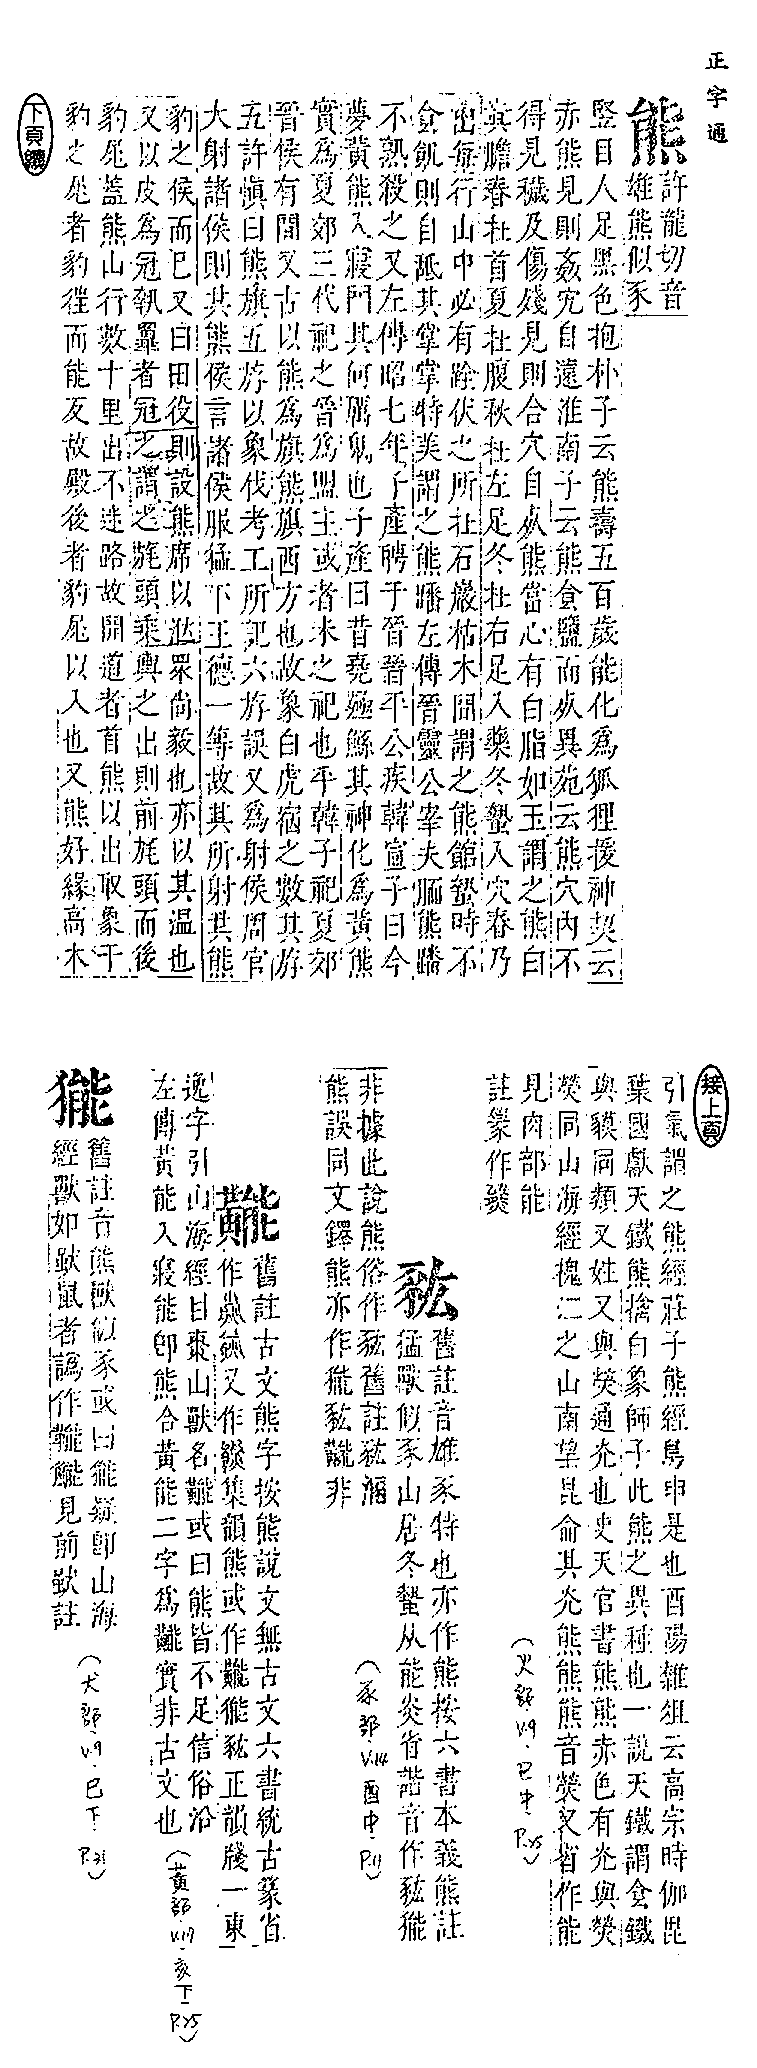 正字通
熊
許龍切音
雄熊似豕
竪目人足黑色抱朴子云熊壽五百歲能化爲狐狸援神契云
赤熊見則姦宄自遠淮南子云熊食鹽而死異苑云熊穴內不
得見穢及傷殘見則合穴自死熊當心有白脂如玉謂之熊白
其膽春在首夏在腹秋在左足冬在右足入藥冬蟄入穴春乃
出每行山中必有跧伏之所在石巖枯木間謂之熊館蟄時不
食飢則自舐其掌掌特美謂之熊蹯左傳晉靈公宰夫胹熊蹯
不熟殺之又左傳昭七年子產聘于晉晉平公疾韓宣子曰今
夢黃熊入寢門其何厲鬼也子產曰昔堯殛鯀其神化爲黃熊
實爲夏郊三代祀之晉爲盟主或者未之祀也乎韓子祀夏郊
晉侯有間又古以熊爲旗熊旗西方也故象白虎宿之數其斿
五許愼曰熊旗五斿以象伐考工所記六斿誤又爲射侯周官
大射諸侯則共熊侯言諸侯服猛下王德一等故其所射其熊
豹之侯而已又曰田役則設熊席以涖眾尚毅也亦以其温也
又以皮爲冠執罼者冠之謂之旄頭乘輿之出則前旄頭而後
豹尾蓋熊山行數十里出不迷路故開道者首熊以出取象于
豹之尾者豹往而能反故殿後者豹尾以入也又熊好緣高木
下頁續
接上頁
引氣謂之熊經莊子熊經鳥申是也酉陽雜俎云高宗時伽毘
葉國獻天鐵熊擒白象師子此熊之異種也一說天鐵謂食鐵
與貘同類又姓又與熒通光也史天官書熊熊赤色有光與熒
熒同山海經槐江之山南望昆侖其光熊熊熊音熒又省作能
見肉部能
註籇作
(火部·V.9·巳中·P.45)
舊註音雄豕特也亦作熊按六書本義熊註
猛獸似豕山居冬蟄从能炎省諧音作豵㺜
非據此說熊俗作豵舊註豵
熊誤同文鐸熊亦作㺜
(豕部·V.14·酉中·P.11)
舊註古文熊字按熊說文無古文六書統古篆省
又作 集韻熊或作 正韻牋一東
逸字引山海經目棗山獸名 或曰熊皆不足信俗沿
左傳黃能入寢能卽熊合黃能二字爲 實非古文也
(黃部·V.19·亥下·P.45)
舊註音熊獸似豕或曰 疑卽山海
經獸如 鼠者譌作 見前 註
(犬部·V.9·巳下·P.31)